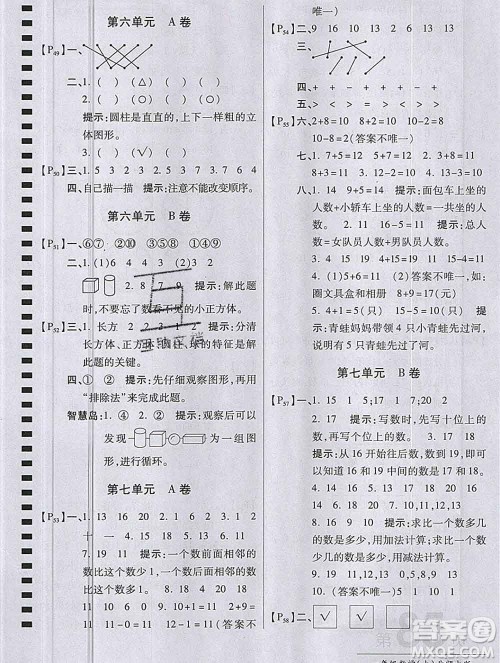 第六单元 A卷
【P49】一、
二、1. ( ) ( ) (△) ( )
2. ( ) (✓) ( ) ( )
提示:圆柱是直直的,上下一样粗的立体图形。
【P50】三、1 5 3 2 3 5 3 7 3
四、自己描一描 提示:注意不能改变顺序。
第六单元 B卷
【P51】一、⑥⑦ ②④ ③⑤ ①⑧⑨
二、1. 2. 8 7 9 提示:解此题
时,不要忘了数看不见的小正方体。
【P52】三、1. 长方 2 2 3 1 提示:分清
长方体、正方体、圆柱、球的特征是解
此题的关键。
四、① ② 提示:先仔细观察图形,再用
“排除法”来做此题。
智慧岛:① ④ 2. 提示:观察可以
发现 为一组图
形,进行循环。
第七单元 A卷
【P53】一、1. 13 16 20 2. 1 6 2 1 2
十 一 3. 2 4. 11 13 10 12
6 8 5. 17 13 16 6. 11 12
7. 19 11 提示:一个数前面相邻的
数比这个数少1,一个数后面相邻的数
比这个数大1。 8. 17 18 19 20
9. 8+11=19(答案不唯一)
唯一)
【P54】二、
三、
四、+ + + + - +
五、> < > < = >
【P55】六、2+8=10 9+2=11 8+2=10
10-8=2(答案不唯一)
七、1. 7+5=12 5+7=12 12-5=7
12-7=5 2. 13-3=10
3. 10+5=15
八、1. 14 9+5=14 提示:面包车上的
人数+小轿车上的人数=一共的
人数。 2. 16 9+7=16 提示:总人
数=女队员人数+男队员人数。
3. 4 15 4 15 19 4+15=19
4. 11 9+2=11(答案不唯一,如:
圈文具盒和相册) 8+9=17
5. 9+1=10 提示:青蛙妈妈带领
4只小青蛙过河,表示青蛙妈妈和
4只小青蛙一起过河。
第七单元 B卷
【P57】一、1. 15 1 5; 17 1 7; 20
2 0 提示:写数时,先写十位上的
数,再写个位上的数。 2. 17 18
19 提示:从16开始往后数,数到
20,中间的数就是16和20中间的数。
3. 17 12 19 18 4. 18 20 16 14
5. 20 7 6. 10,11,12,13
7. 11 3 提示:求比一个数多几的
数是多少,用加法计算;求比一个数少几
的数是多少,用减法计算。
8. 13 9. 9+5=14(答案不唯一)
10. 20,19,15,13,9,5,4,0
【P58】二、